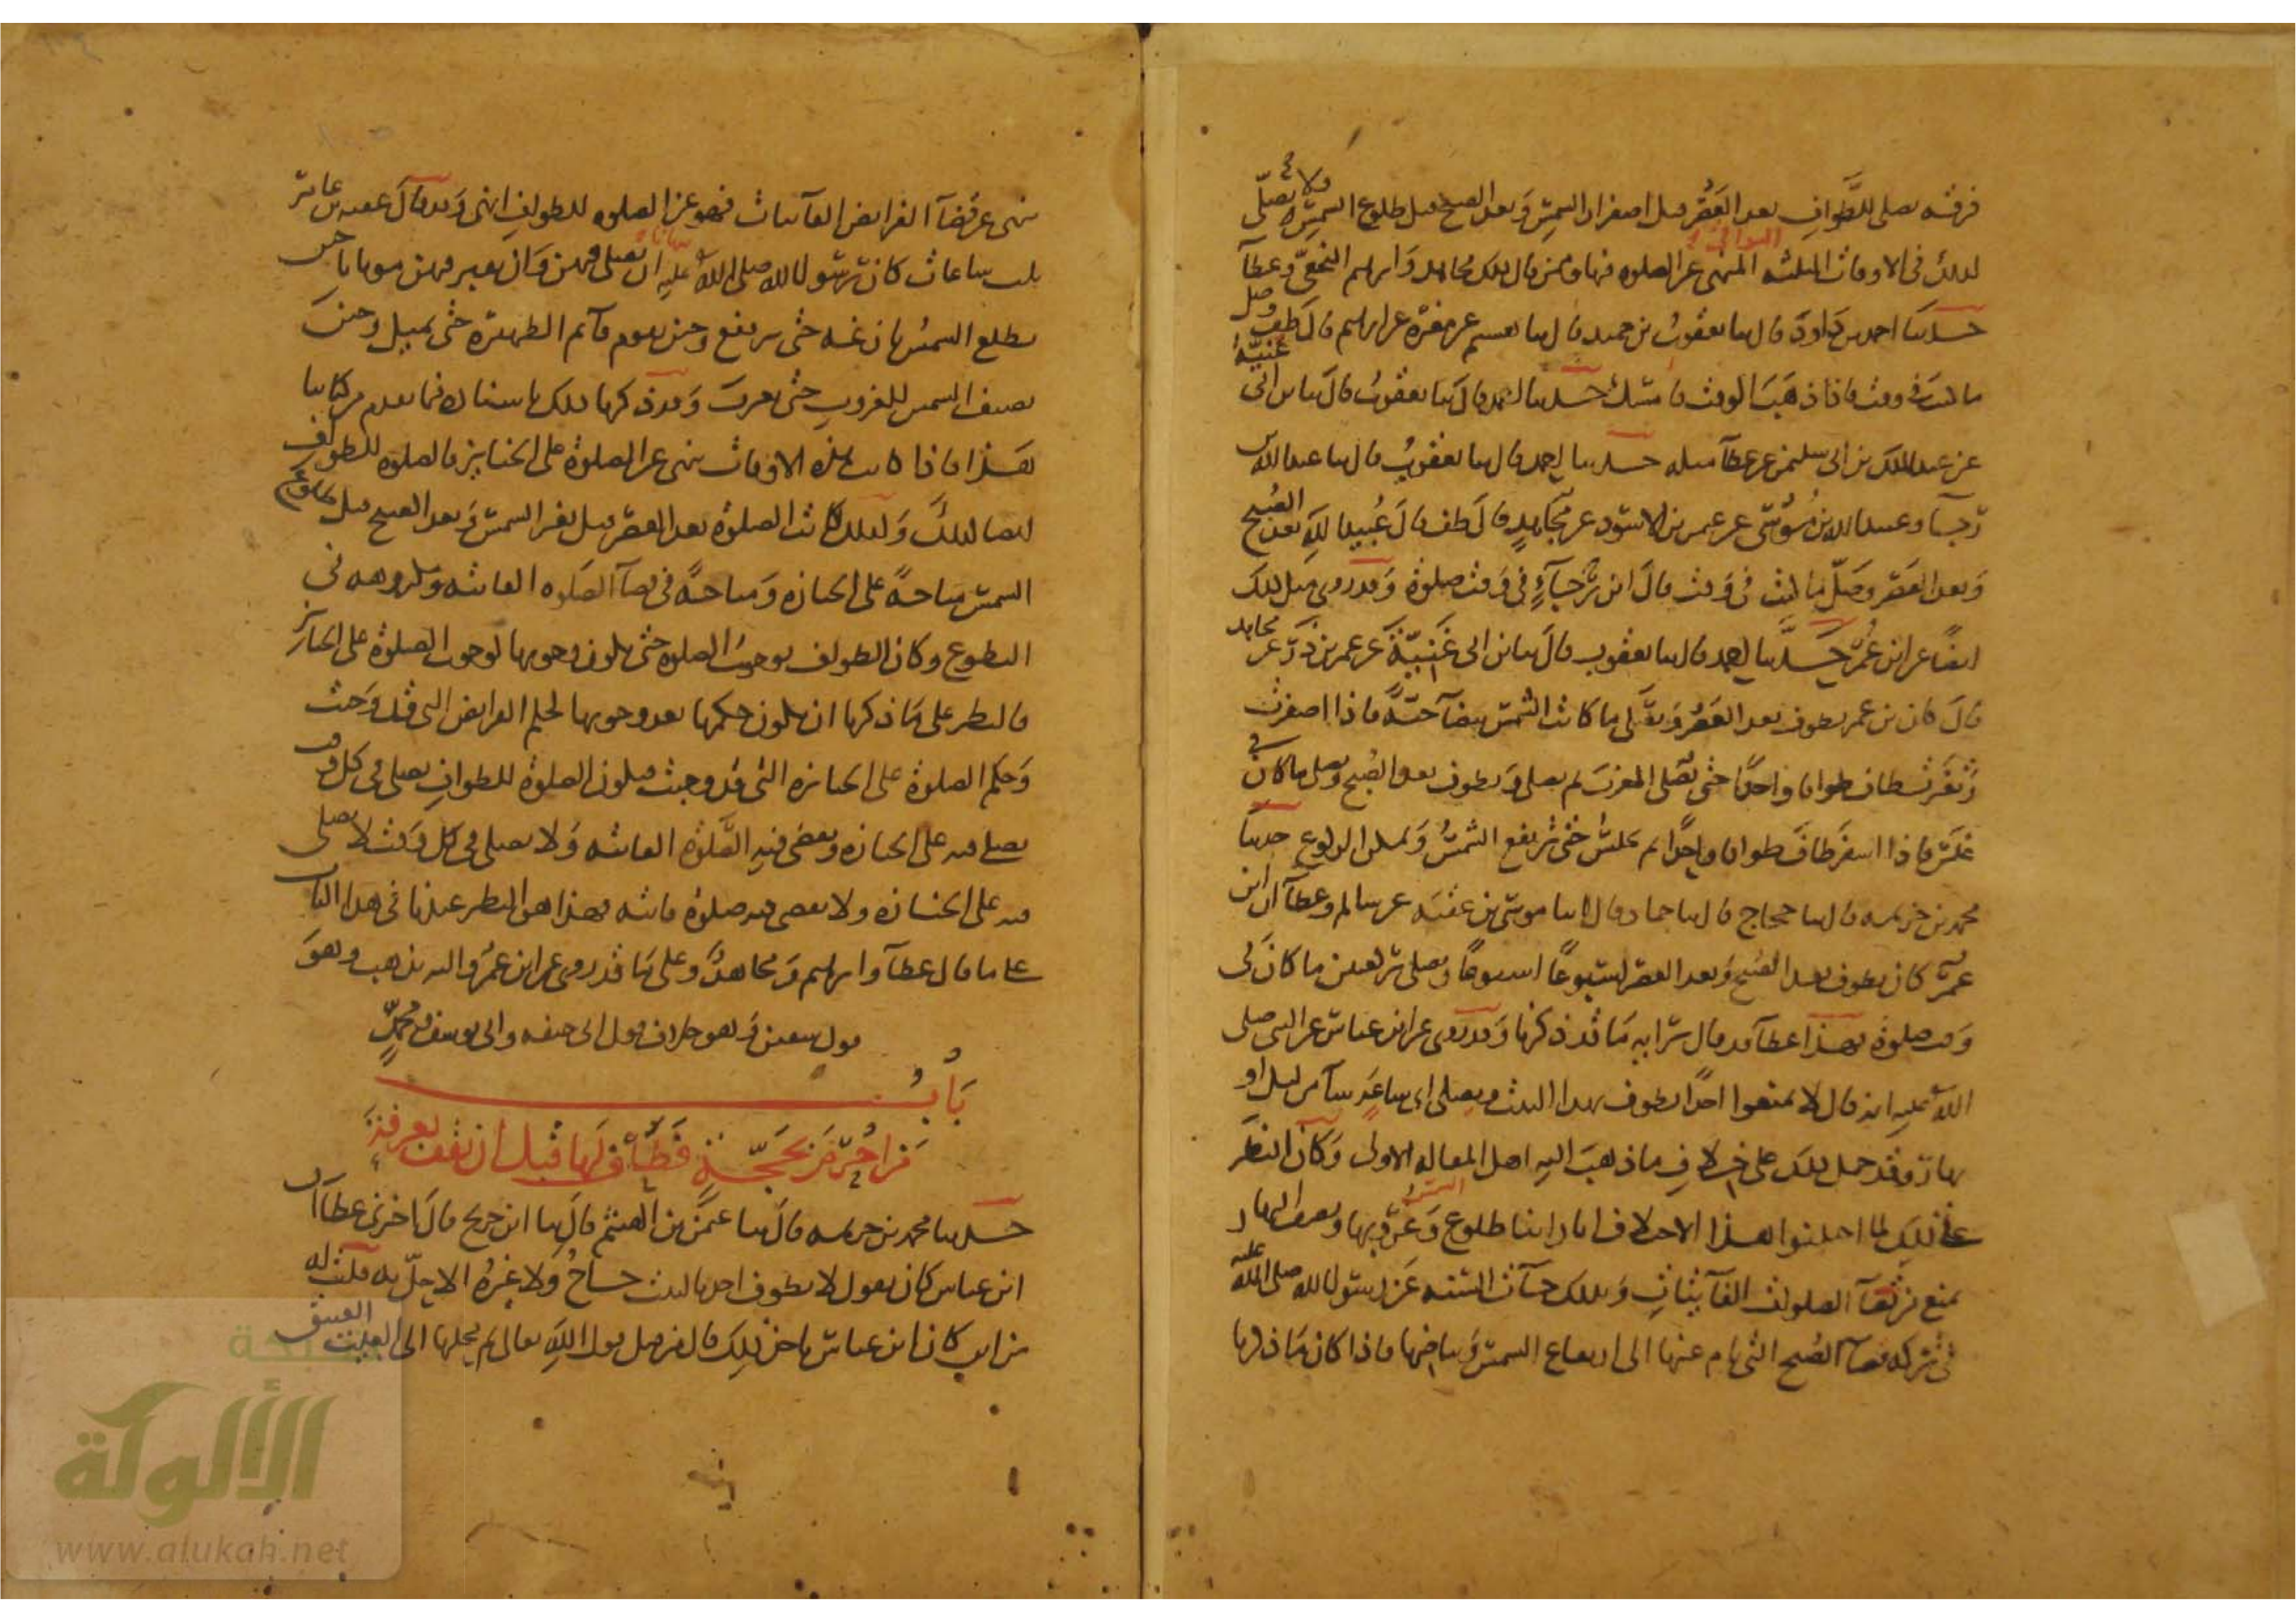 فرقة يصلى للطواف بعد العصر قبل اصفرار الشمس وبعد الصبح قبل طلوع الشمس ولا يصلى
لذلك فى الاوقات الثلثة البواقى المنهى عن الصلوة فيها وممن قال بذلك مجاهد وابراهيم النخعى وعطآ
حدثنا احمد بن داود قال ثنا يعقوب بن حميد قال ثنا عن مغيرة عن ابراهيم قال طف وصل
ما كنت فى وقت فاذا ذهب الوقت فامسك حدثنا احمد قال ثنا يعقوب قال ثنا ابن ابى غنية
عن عبد الملك بن ابى سليمن عن عطآ مثله حدثنا احمد قال ثنا يعقوب قال ثنا عبد الله بن
رجآ وعبيد الله بن موسى عن عثمن بن الاسود عن مجاهد قال طف قال عبيد الله بعد الصبح
وبعد العصر وصل ما كنت فى وقت قال ابن رجآء فى وقت صلوة وقد روى مثل ذلك
ايضا عن ابن عمر حدثنا احمد قال ثنا يعقوب قال ثنا ابن ابى غنية عن عمر بن ذر عن مجاهد
قال كان ابن عمر يطوف بعد العصر ويصلى ما كانت الشمس بيضآ حية فاذا اصفرت
وتغيرت طاف طوافا واحدا حتى يصلى المغرب ثم يصلى ويطوف بعد الصبح ويصلى ما كان فى
غلس فاذا اسفر طاف طوافا واحدا ثم يجلس حتى ترتفع الشمس ويمكن الركوع حدثنا
محمد بن خزيمة قال ثنا حجاج قال ثنا حماد قال انا موسى بن عقبة عن سالم وعطآ ان ابن
عمر كان يطوف بعد الصبح وبعد العصر اسبوعا اسبوعا ويصلى ركعتين ما كان فى
وقت صلوة فهذا عطآ قد قال برايه ما قد ذكرنا وقد روى عن ابن عباس عن النبى صلى
الله عليه انه قال لا تمنعوا احدا يطوف بهذا البيت ويصلى اى ساعة شآ من ليل او
نهار وقد حمل ذلك على خلاف ما ذهب اليه اهل المقالة الاولى وكان النظر
فى ذلك لما اختلفوا هذا الاختلاف انا راينا طلوع الشمس وغروبها ونصف النهار
يمنع من قضآ الصلوات الفآيتات وبذلك جآت السنة عن رسول الله صلى الله عليه
فى تركه قضآ الصبح التى نام عنها الى ارتفاع الشمس وبياضها فاذا كان ما ذكرنا
ينهى عن قضآ الفرايض الفآيتات فهو عن الصلوة للطواف انهى وقد قال عقبة بن عامر
ثلث ساعات كان رسول الله صلى الله عليه ينهانا ان نصلى فيهن وان نقبر فيهن موتانا حين
تطلع الشمس بازغة حتى ترتفع وحين يقوم قآيم الظهيرة حتى يميل وحين
تضيف الشمس للغروب حتى تغرب وقد ذكرنا ذلك باسناده فيما تقدم من كتابنا
هذا فاذا كانت هذه الاوقات تنهى عن الصلوة على الجنايز فالصلوة للطواف
ايضا كذلك وكذلك كانت الصلوة بعد العصر قبل تغير الشمس وبعد الصبح قبل طلوع
الشمس مباحة على الجنازة ومباحة فى قضآ الصلوة الفائتة ومكروهة فى
التطوع وكان الطواف يوجب الصلوة حتى يكون وجوبها كوجوب الصلوة على الجنايز
فالنظر على ما ذكرنا ان يكون حكمها بعد وجوبها كحكم الفرايض التى قد وجبت
وحكم الصلوة على الجنازة التى قد وجبت فيكون الصلوة للطواف يصلى فى كل وقت
يصلى فيه على الجنازة ويقضى فيه الصلوة الفائتة ولا يصلى فى كل وقت لا يصلى
فيه على الجنازة ولا يقضى فيه صلوة فائتة فهذا هو النظر عندنا فى هذا الباب
على ما قال عطآ وابراهيم ومجاهد وعلى ما قد روى عن ابن عمر واليه نذهب وهو
قول سفين وهو خلاف قول ابى حنيفة وابى يوسف ومحمد
باب
من احرم بحجة فطاف لها قبل ان يقف بعرفة
حدثنا محمد بن خزيمة قال ثنا عثمن بن الهيثم قال ثنا ابن جريج قال اخبرنى عطآ ان
ابن عباس كان يقول لا يطوف احد بالبيت حاج ولا غيره الا حل به قلت له
من اين كان ابن عباس ياخذ ذلك قال من قبل قول الله تعالى ثم محلها الى البيت العتيق
الألوكة
www.alukah.net